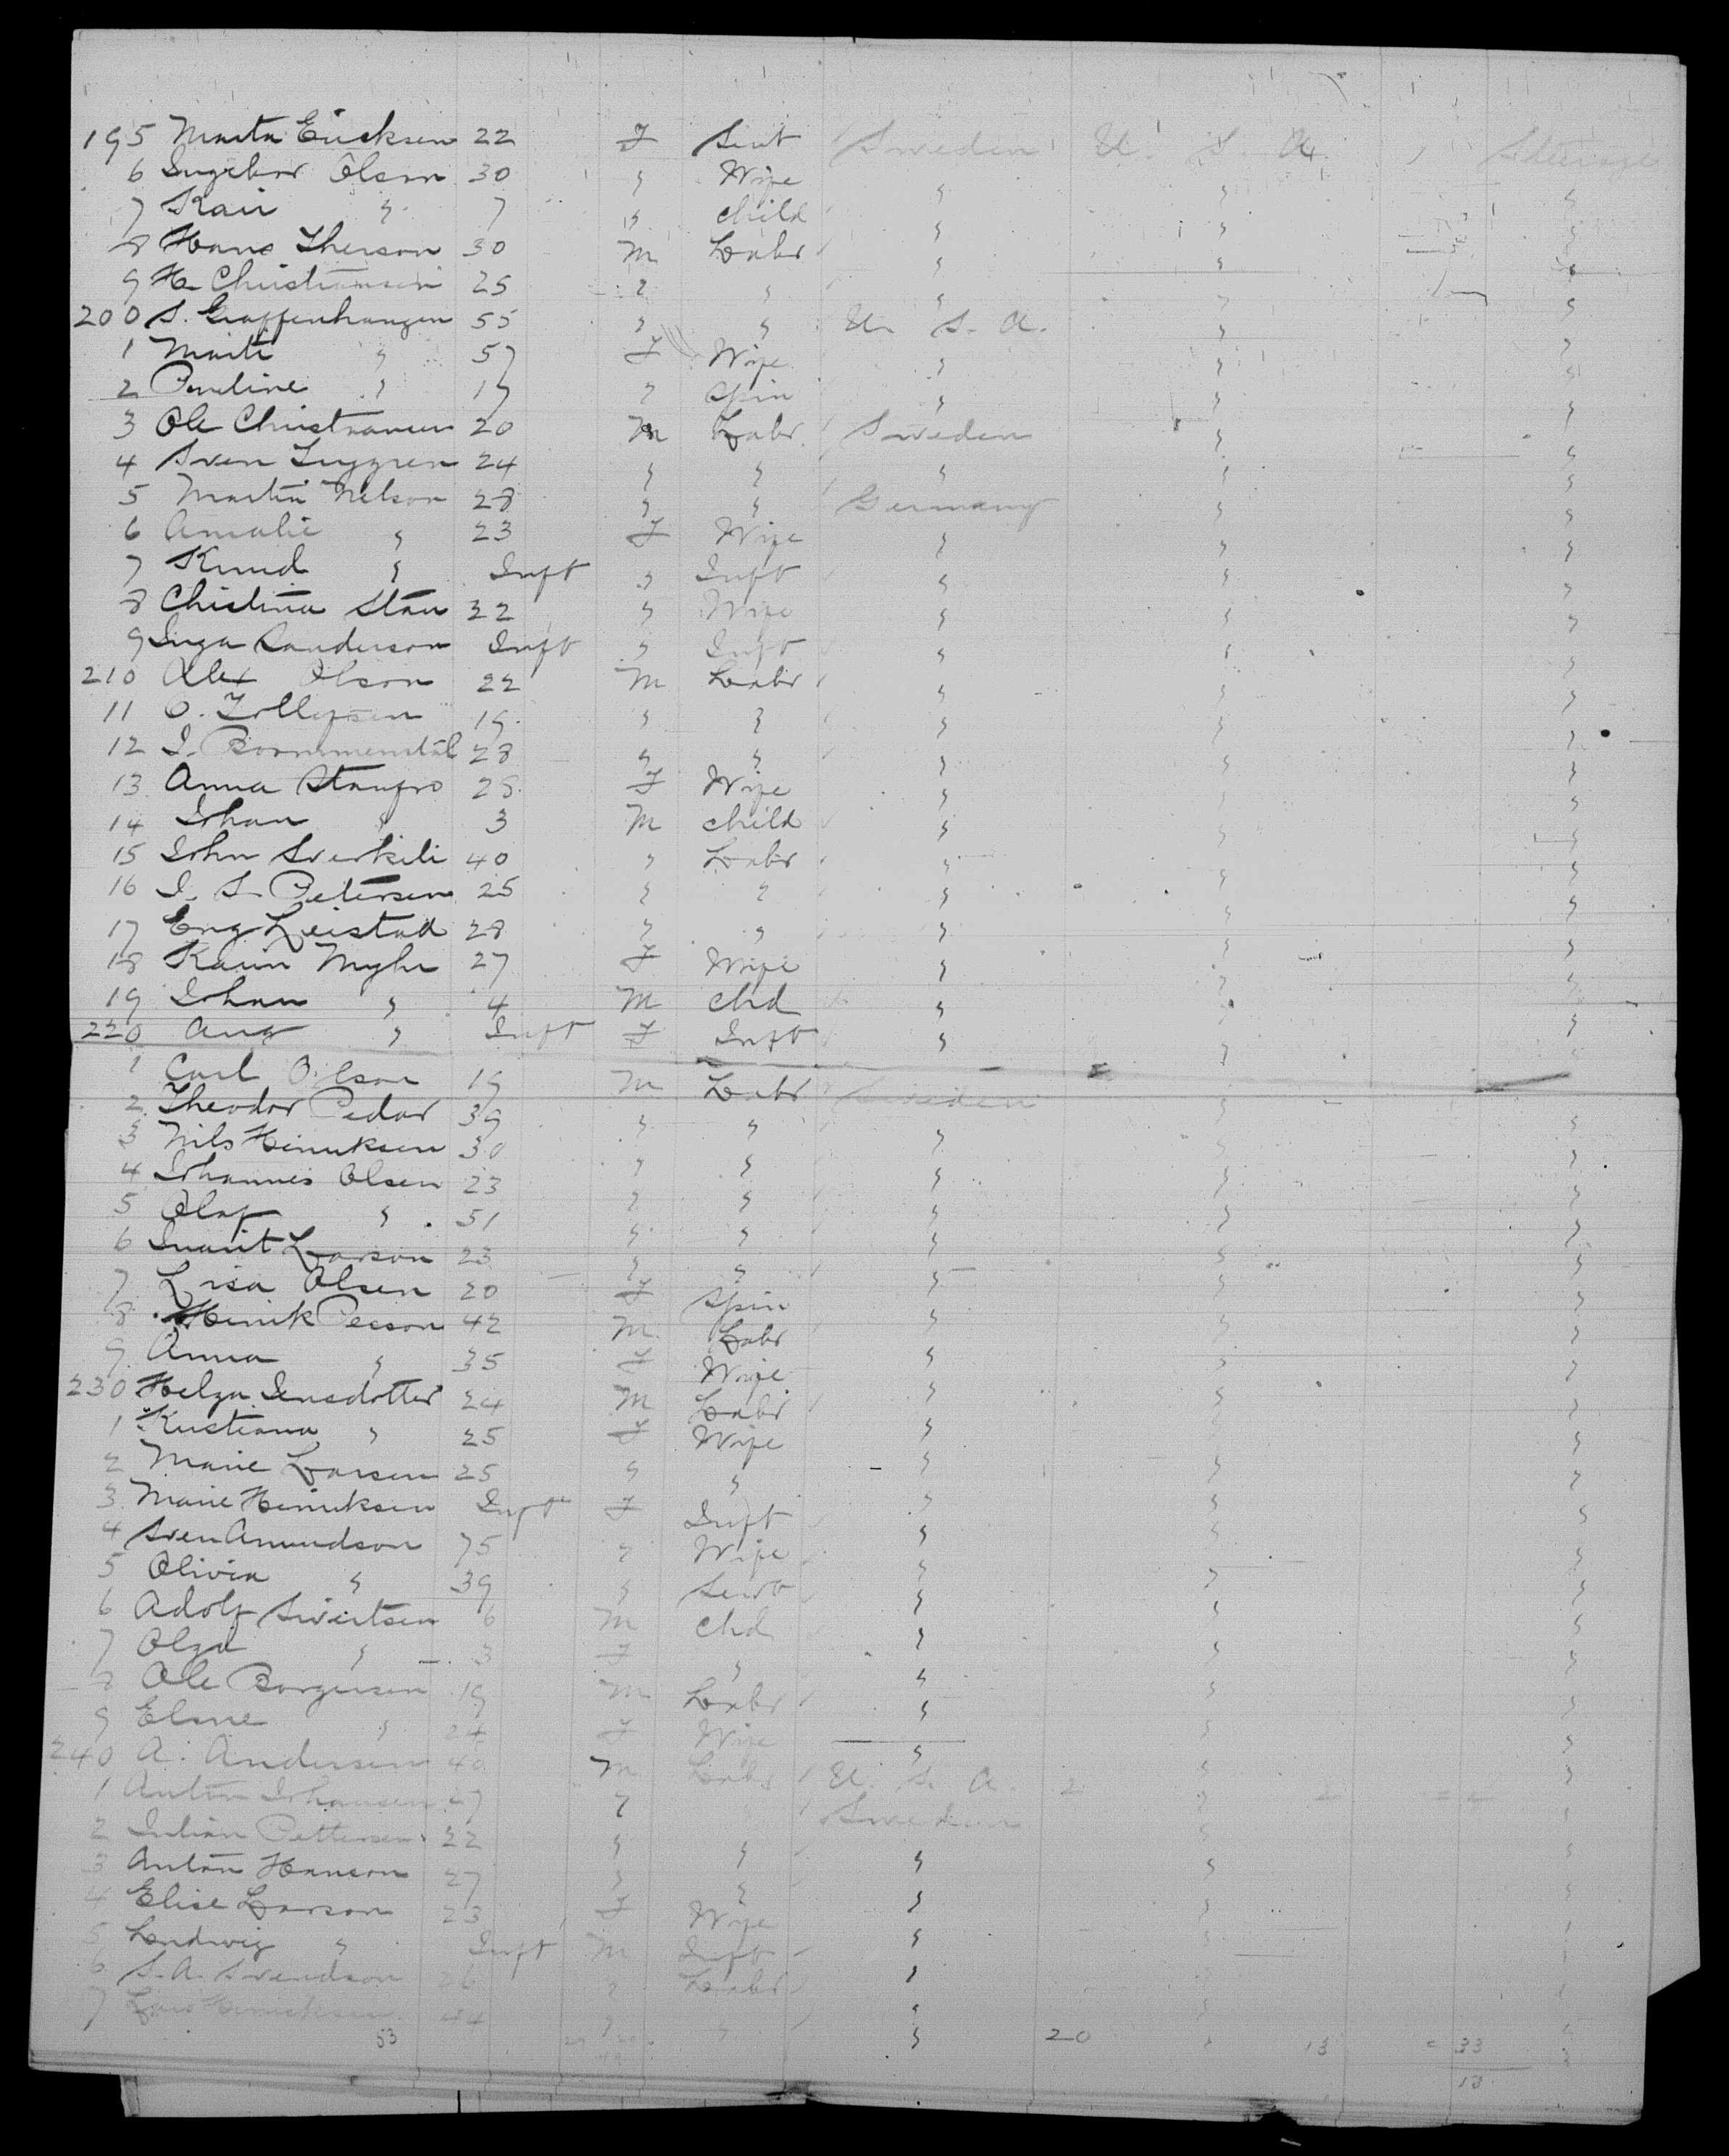 195 Marta Ericksen 22 F Servt Sweden U. S. A. Steerage
6 Ingebor Olson 30 " Wife " " "
7 Kari " 7 " child " " "
8 Hans Therson 30 M Labr " " "
9 H. Christiansen 25 " " " " "
200 S. Graffenhangen 55 " " U. S. A. " "
1 Marti " 57 F Wife " " "
2 Pauline " 17 " Spin " " "
3 Ole Christiansen 20 M Labr Sweden " "
4 Sven 24 " " " " "
5 Martin Nelson 28 " " Germany " "
6 Amalie " 23 F Wife " " "
7 Knud " Inft " Inft " " "
8 Christina Stau 32 " Wife " " "
9 Inga Sanderson Inft " Inft " " "
210 Alex Olson 22 M Labr " " "
11 O. Tollefsen 19 " " " " "
12 I. 28 " " " " "
13 Anna Stanfro 28 F Wife " " "
14 Johan " 3 M child " " "
15 John Sverkili 40 " Labr " " "
16 I. S. Petersen 25 " " " " "
17 Eng Leistad 28 " " " " "
18 Karin Myhr 27 F Wife " " "
19 Johan " 4 M chd " " "
220 Ana " Inft F Inft " " "
1 Carl Olson 19 M Labr Sweden " "
2 Theodor Pedar 39 " " " " "
3 Nils Henriksen 30 " " " " "
4 Johannes Olsen 23 " " " " "
5 Olaf " 51 " " " " "
6 Larson 23 " " " " "
7 Lisa Olsen 20 F Spin " " "
8 Henrik Person 42 M Labr " " "
9 Anna " 35 F Wife " " "
230 Helga Jensdotter 24 M Labr " " "
1 Kristiana " 25 F Wife " " "
2 Marie Larsen 25 " " " " "
3 Marie Henriksen Inft F Inft " " "
4 Sven Amundson 75 " Wife " " "
5 Olivia " 39 " Servt " " "
6 Adolf Sivertsen 6 M chd " " "
7 Olga " 3 F " " " "
8 Ole Borgersen 19 M Labr " " "
9 Elsne " 24 F Wife " " "
240 A. Andersen 40 M Labr U. S. A. 2 "
1 Anton Johansen 27 " " Sweden " "
2 Julian Pettersen 22 " " " " "
3 Anton Hanson 27 " " " " "
4 Elise Larson 23 F Wife " " "
5 Ludwig " Inft M Inft " " "
6 S. A. Svendson 26 " Labr " " "
7 Lars Henriksen 44 " " " " "
53 20 13 = 33
13